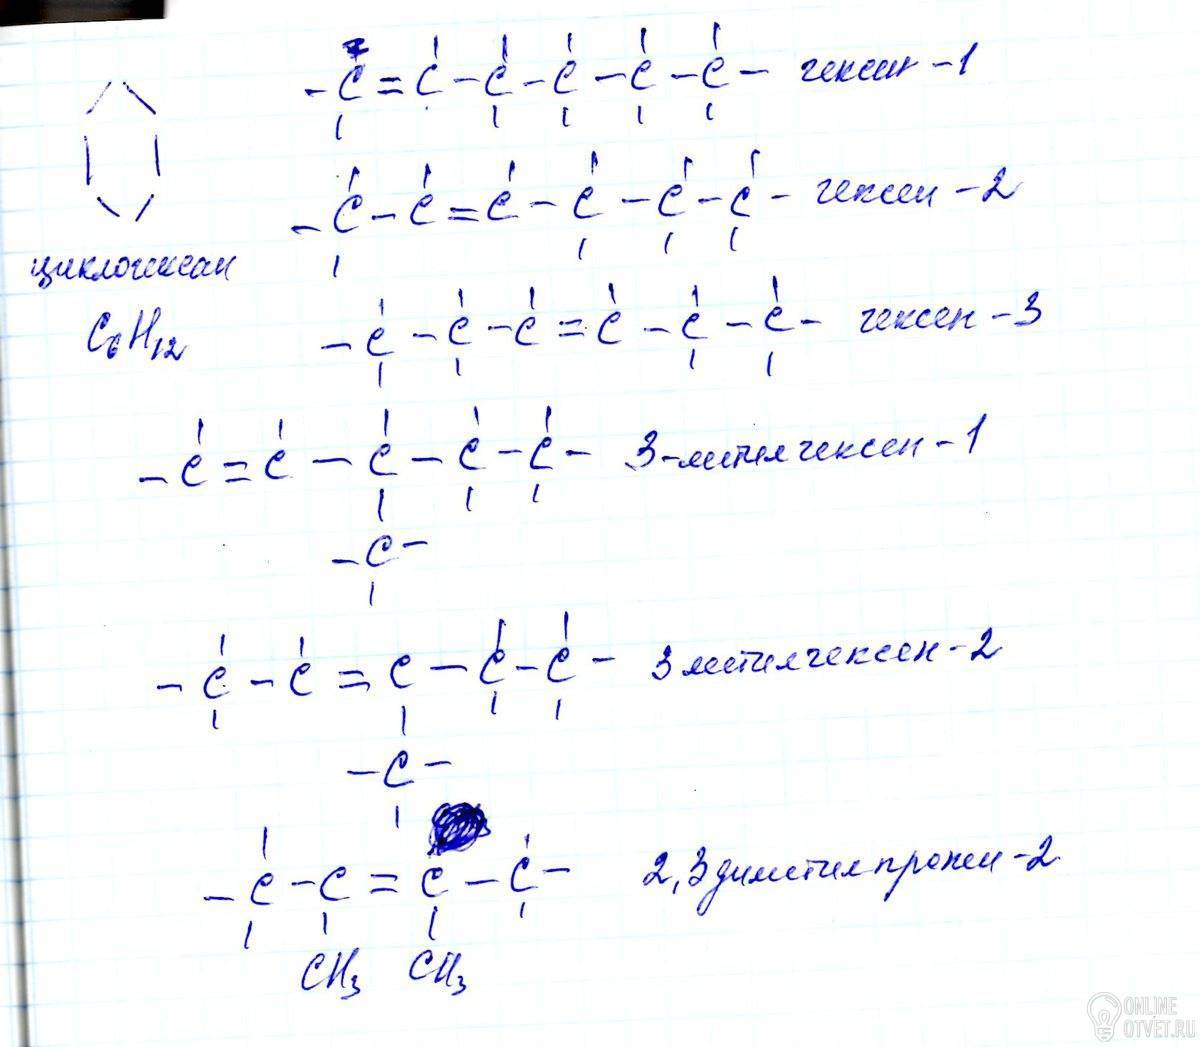 - C = C - C - C - C - C - гексен - 1
- C - C = C - C - C - C - гексен - 2
циклогексан
C₆H₁₂
- C - C - C = C - C - C - гексен - 3
- C = C - C - C - C - 3-метилгексен - 1
- C -
- C - C = C - C - C - 3 метилгексен - 2
- C -
- C - C = C - C - 2,3 диметилпропен - 2
CH₃ CH₃
ONLINE
OTVET.RU